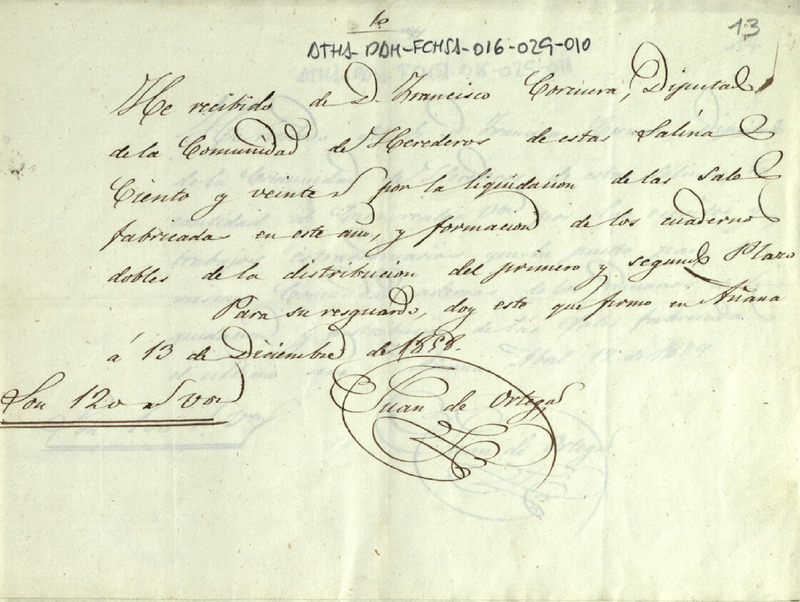 10
13
ATHA-DAH-FCHSA-016-029-010
He recibido de D. Francisco Corcuera, Diputado
de la Comunidad de Herederos de estas Salinas
Ciento y veinte rs por la liquidacion de las sales
fabricadas en este año, y formacion de los cuadernos
dobles de la distribucion del primero y segundo Plazo
Para su resguardo, doy este que firmo en Añana
á 13 de Diciembre de 1858.
Son 120 rs von
Juan de Ortega